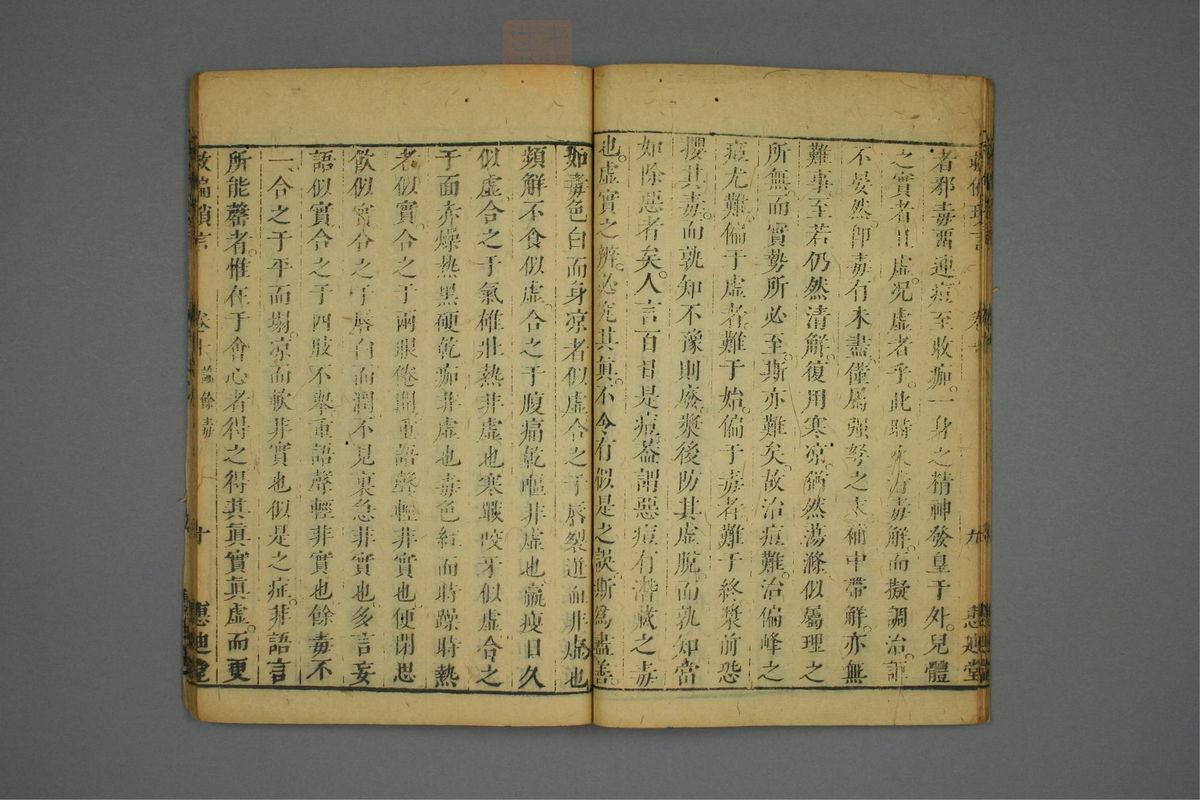 者邪毒留連。痘至敗痂。一身之精神發皇于外。兒體
之實者且虛。況虛者乎。此時火清毒解。而擬調治。詎
不晏然。卽毒有未盡。僅屬强弩之末。補中帶解。亦無
難事。至若仍然清解。復用寒凉。猶然蕩滌。似屬理之
所無。而實勢所必至。斯亦難矣。故治痘難。治偏峰之
痘尤難。偏于虛者。難于始。偏于毒者。難于終。漿前恐
攖其毒。而孰知不豫則廢。漿後防其虛脫。而孰知當
如除惡者矣。人言百日是痘。葢謂惡痘有潛藏之毒
也。虛實之辨。必究其眞。不令有似是之談。斯爲盡善。
如毒色白而身凉者似虛。合之于唇裂逆而非虛也
頻解不食似虛。合之于腹痛乾嘔非虛也。羸瘦日久
似虛。合之于氣雄壯熱非虛也。寒戰咬牙似虛。合之
于面赤燥熱黑硬乾痂非虛也。毒色紅而時躁時熱
者似實。合之于兩眼倦閉重語聲輕非實也。便閉思
飮似實。合之于唇白而潤不見裏急非實也。多言妄
語似實。合之于四肢不擧重語聲輕非實也。餘毒不
一。合之于平而塌。凉而軟非實也。似是之症。非語言
所能罄者。惟在于會心者得之。得其眞實眞虛。而更
救偏瑣言 卷十 論餘毒 十 惠迪堂